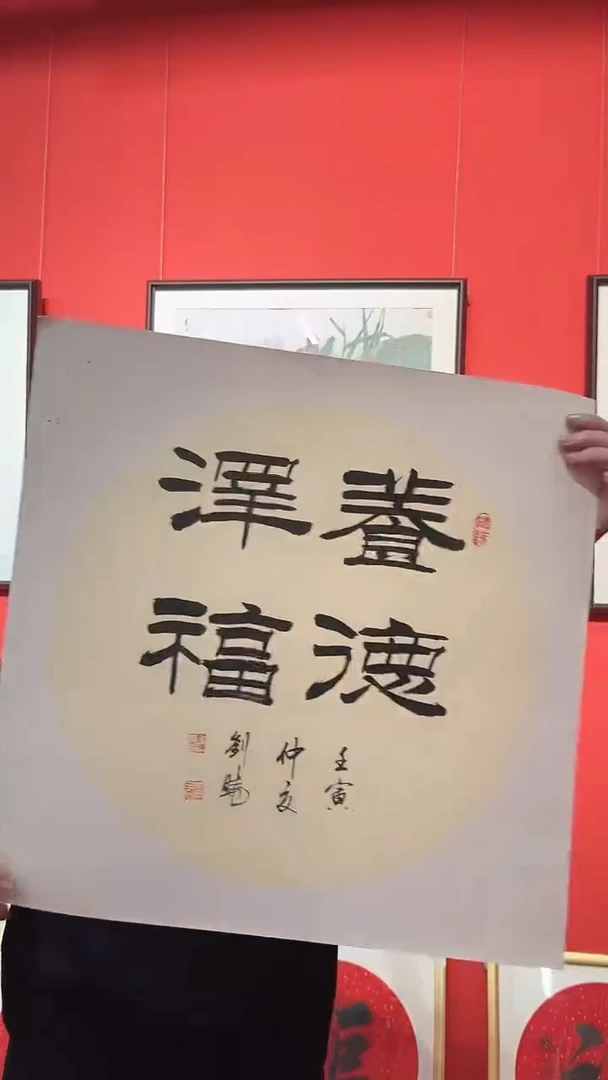 養德
澤福
壬寅
仲夏